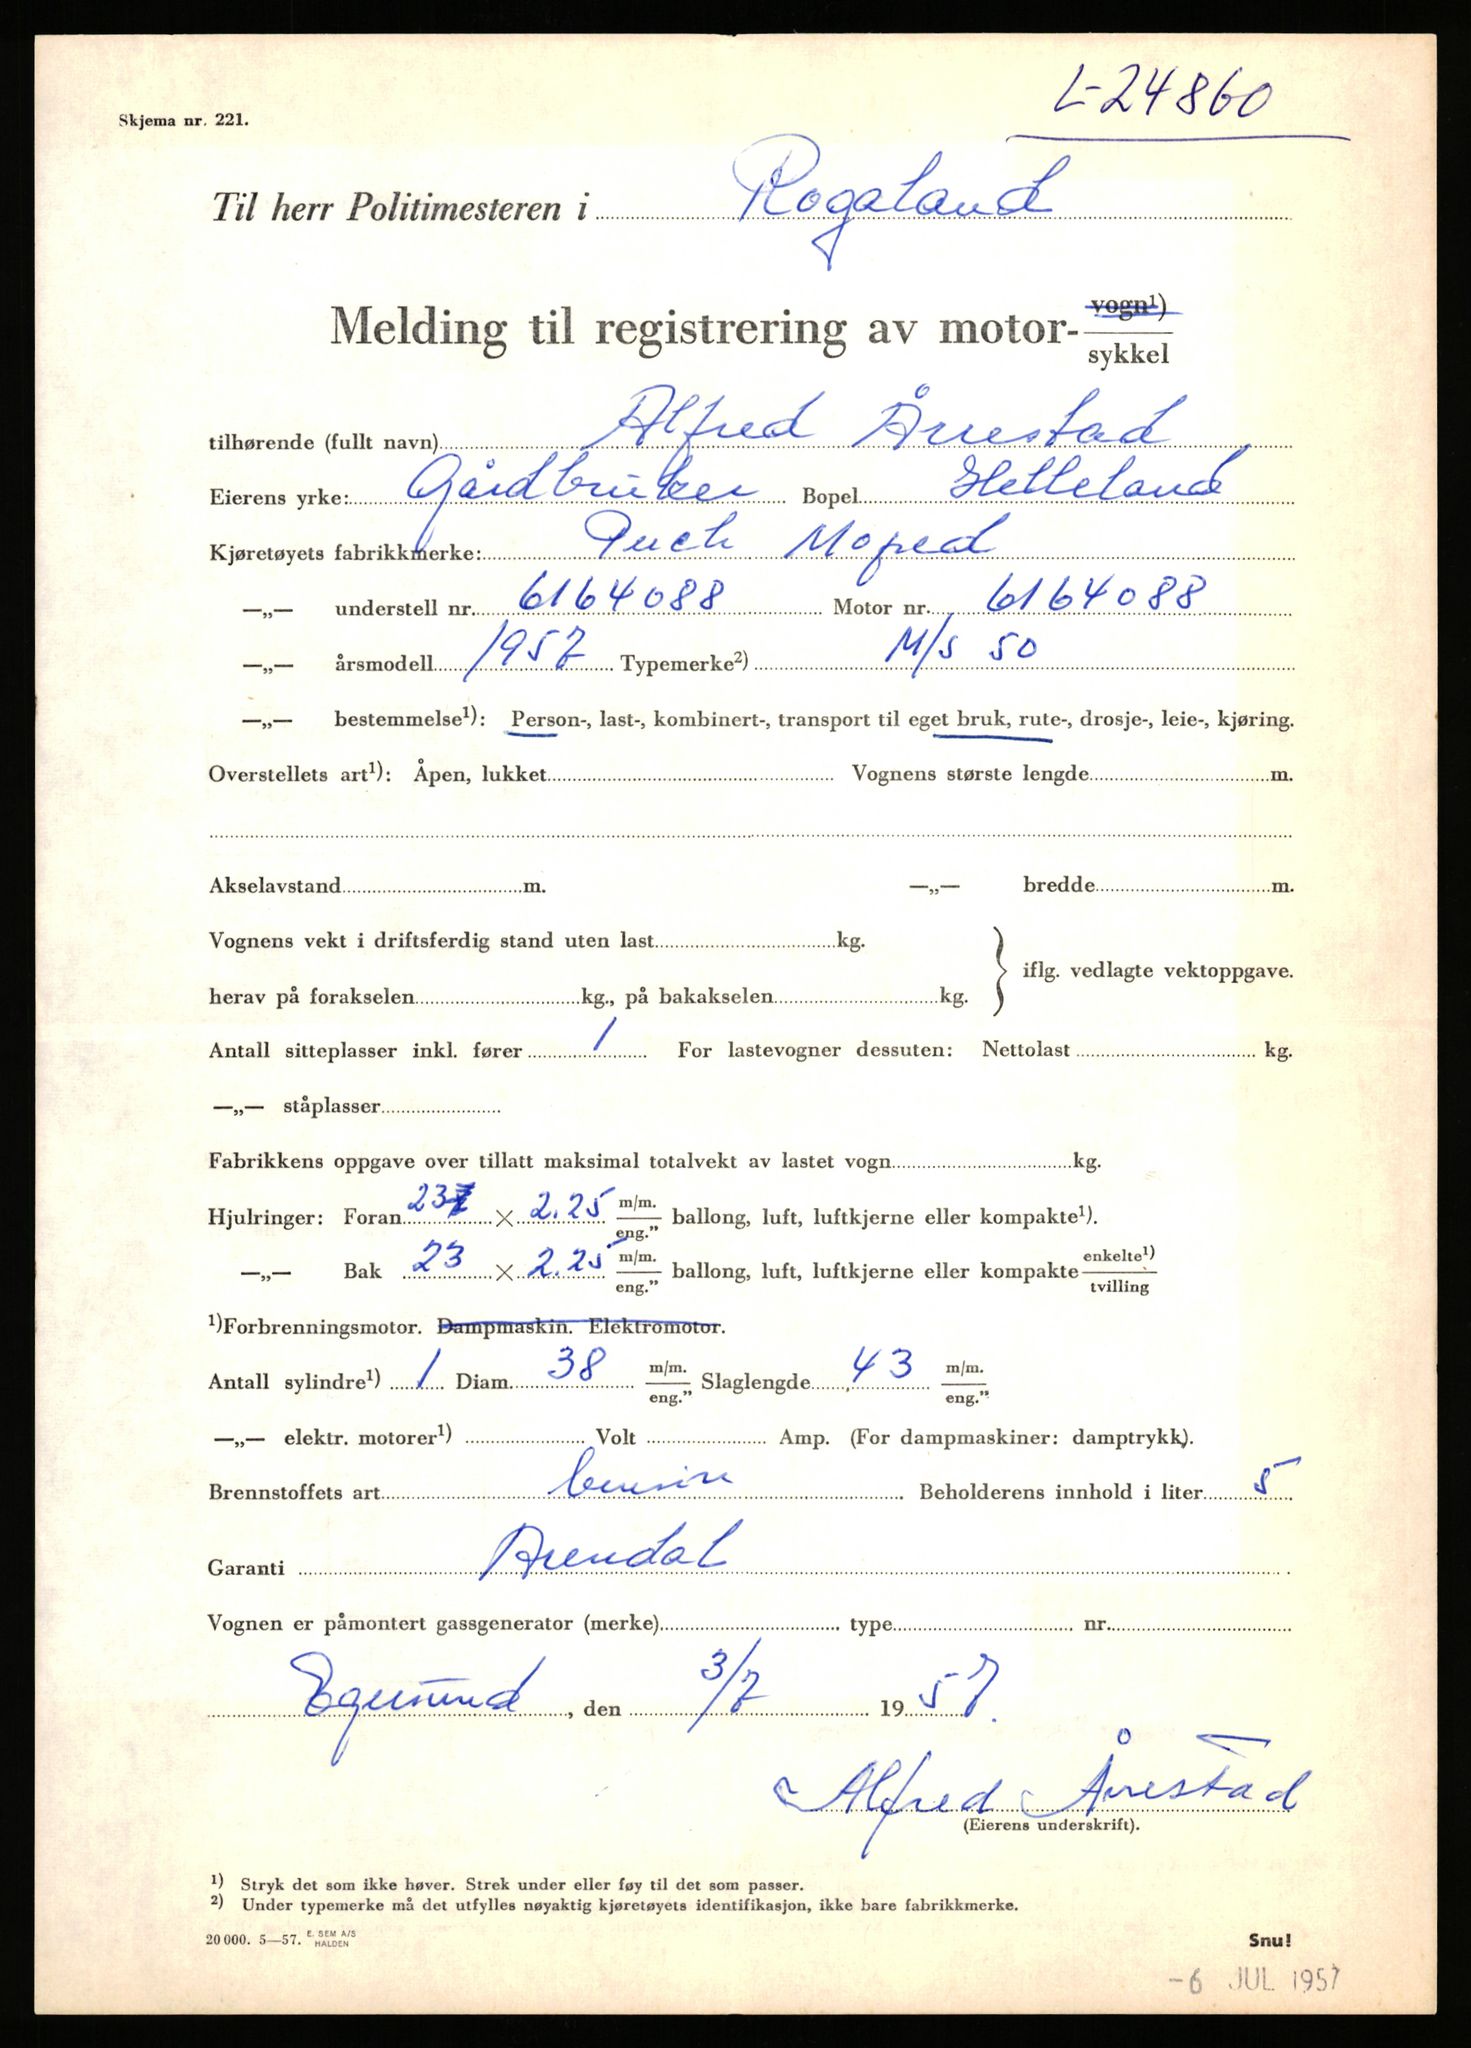 L-24860
Skjema nr. 221.
Til herr Politimesteren i Rogaland
Melding til registrering av motor- vogn¹) sykkel
tilhørende (fullt navn) Alfred Årrestad
Eierens yrke: Gårdbruker Bopel Helleland
Kjøretøyets fabrikkmerke: Puch Moped
—„— understell nr. 6164088 Motor nr. 6164088
—„— årsmodell 1957 Typemerke²) M/S 50
—„— bestemmelse¹): Person-, last-, kombinert-, transport til eget bruk, rute-, drosje-, leie-, kjøring.
Overstellets art¹): Åpen, lukket Vognens største lengde m.
Akselavstand m. —„— bredde m.
Vognens vekt i driftsferdig stand uten last kg.
herav på forakselen kg., på bakakselen kg. } iflg. vedlagte vektoppgave.
Antall sitteplasser inkl. fører 1 For lastevogner dessuten: Nettolast kg.
—„— ståplasser
Fabrikkens oppgave over tillatt maksimal totalvekt av lastet vogn kg.
Hjulringer: Foran 23 × 2.25 m/m. eng.” ballong, luft, luftkjerne eller kompakte¹).
—„— Bak 23 × 2.25 m/m. eng.” ballong, luft, luftkjerne eller kompakte enkelte¹) tvilling
¹)Forbrenningsmotor. Dampmaskin. Elektromotor.
Antall sylindre¹) 1 Diam. 38 m/m. eng.” Slaglengde 43 m/m. eng.”
—„— elektr. motorer¹) Volt Amp. (For dampmaskiner: damptrykk).
Brennstoffets art bensin Beholderens innhold i liter 5
Garanti Arendal
Vognen er påmontert gassgenerator (merke) type nr.
Egersund, den 3/7 1957.
Alfred Årrestad
(Eierens underskrift).
¹) Stryk det som ikke høver. Strek under eller føy til det som passer.
²) Under typemerke må det utfylles nøyaktig kjøretøyets identifikasjon, ikke bare fabrikkmerke.
20 000. 5—57. E. SEM A/S HALDEN
Snu!
-6 JUL 1957